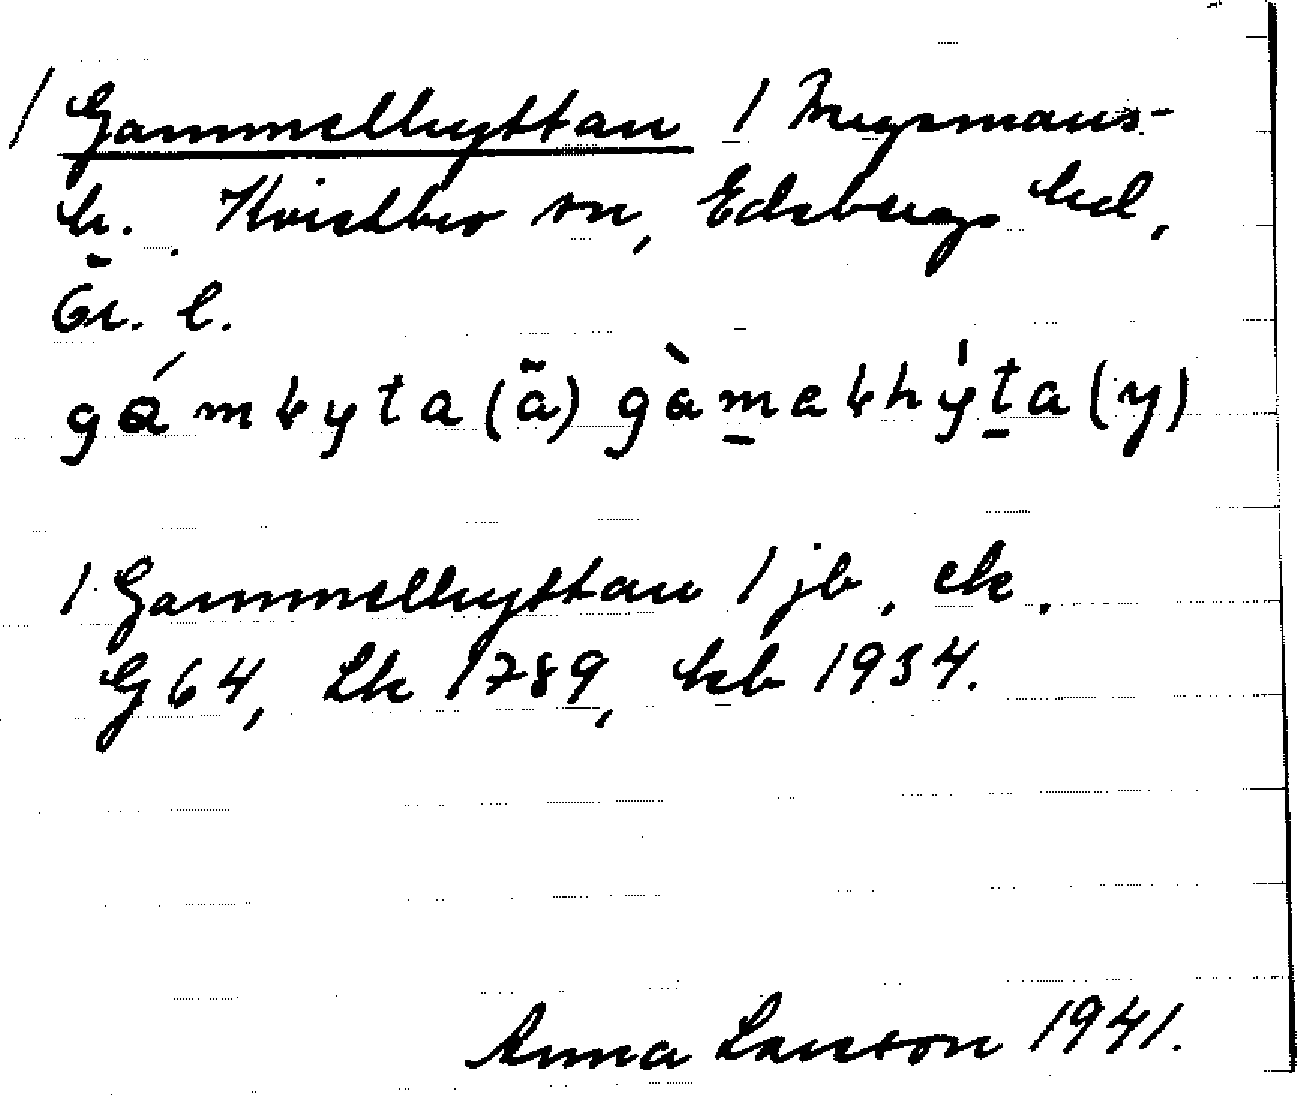 / Gammelhyttan / Mugsmans-
h. Kvistbro sn, Edsbergs hd,
Ör. l.
gámhyta (ä) gàmelhýta (y)
/ Gammelhyttan / jb, ek,
G 64, Lk 1789, kb 1934.
Anna Larsson 1941.